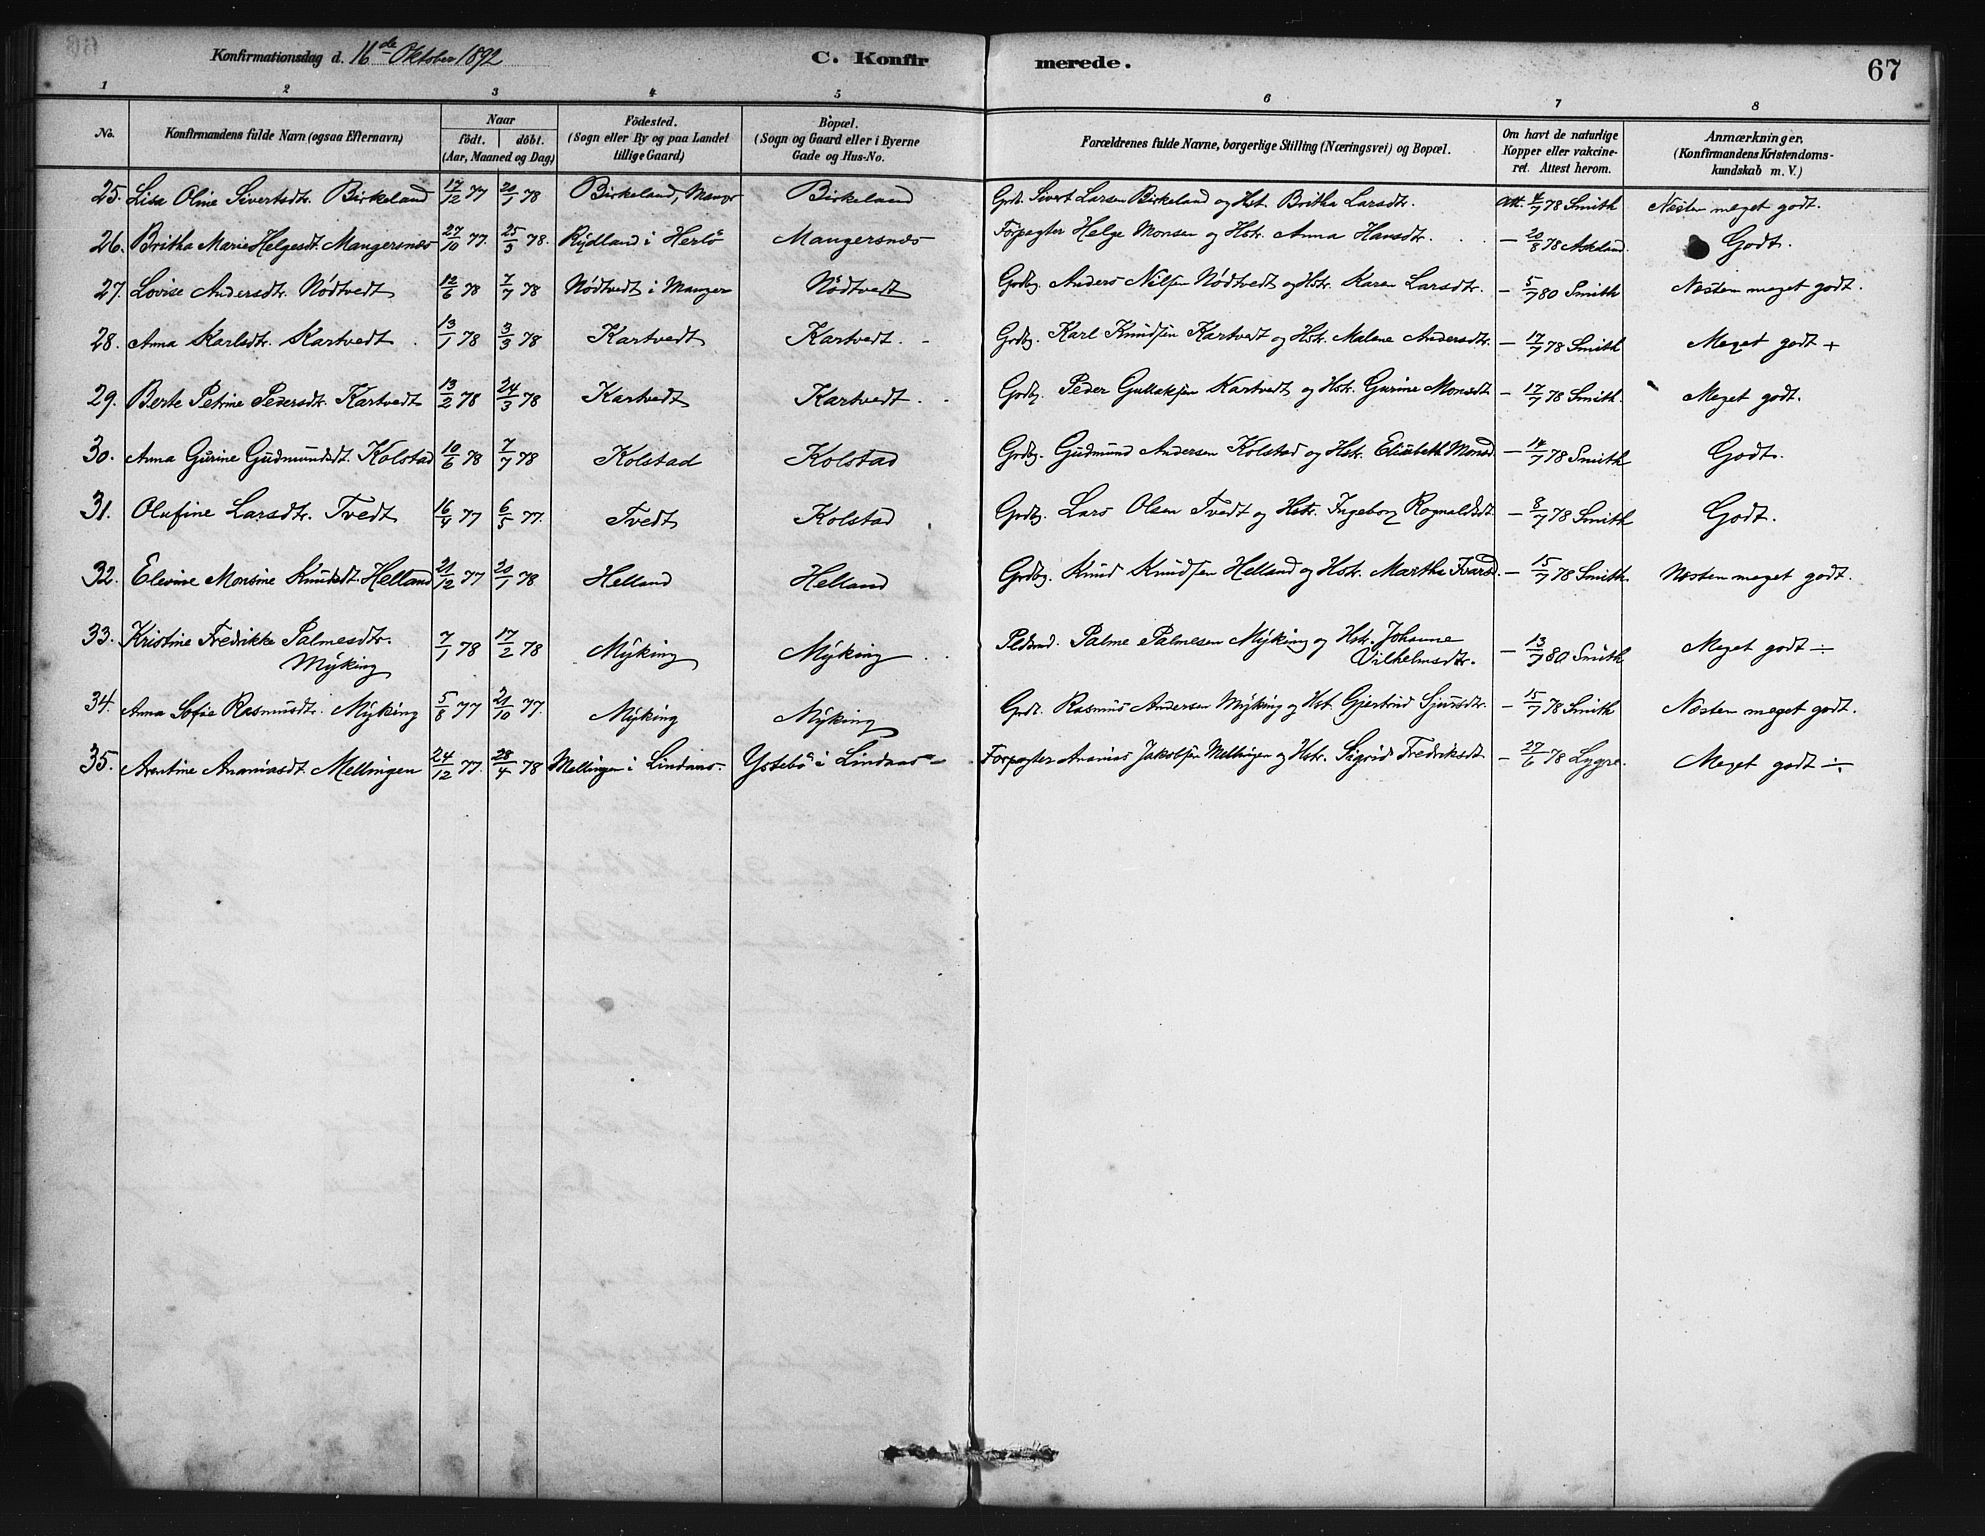 Konfirmationsdag d. 16de Oktober 1892 C. Konfirmerede. 67
1 2 3 4 5 6 7 8
No. Konfirmandens fulde Navn (ogsaa Efternavn) Naar födt. döbt. (Aar, Maaned og Dag) Födested. (Sogn eller By og paa Landet tillige Gaard) Bopæl. (Sogn og Gaard eller i Byerne Gade og Hus-No. Forældrenes fulde Navne, borgerlige Stilling (Næringsvei) og Bopæl. Om havt de naturlige Kopper eller vakcineret. Attest herom. Anmærkninger. (Konfirmandens Kristendomskundskab m. V.)
25. Lisa Oline Sivertsdtr. Birkeland 17/12 77 20/1 78 Birkeland, Manger Birkeland Grdb. Sivert Larsen Birkeland og Hst. Britha Larsdtr. Att. 4/7 78 Smith Næsten meget godt.
26. Britha Marie Helgesdt. Mangersnæs 27/10 77. 25/3 78. Rydland i Herlö Mangersnæs Forpagter Helge Monsen og Hstr. Anna Hansdtr. - 20/8 78 Askeland Godt.
27. Lovise Andersdtr. Nödtvedt 12/6 78 7/7 78 Nödtvedt i Manger Nödtvedt Grdbg. Anders Nilsen Nödtvedt og Hstr. Karen Larsdtr. - 5/7 80 Smith Næsten meget godt.
28. Anna Karlsdtr. Kartvedt 13/1 78 3/3 78 Kartvedt Kartvedt. Grdbg. Karl Knudsen Kartvedt og Hstr. Malene Andersdtr. - 17/7 78 Smith Meget godt +
29. Berte Petrine Pedersdtr. Kartvedt 13/2 78 24/3 78 Kartvedt Kartvedt. Grdbg. Peder Gullaksen Kartvedt og Hstr. Gurine Monsdt. - 17/7 78 Smith. Meget godt.
30. Anna Gurine Gudmundsdt. Kolstad 10/6 78 7/7 78 Kolstad Kolstad Grdbg. Gudmund Andersen Kolstad og Hstr. Elisabeth Monsd. - 14/7 78 Smith Godt.
31. Olufine Larsdtr. Tvedt 16/4 77 6/5 77. Tvedt Kolstad Grdbg. Lars Olsen Tvedt og Hstr. Ingeborg Rognaldsdt. - 8/7 78 Smith Godt.
32. Elevine Monsine Knudsdt. Helland 21/12 77 20/1 78 Helland Helland Grdbg. Knud Knudsen Helland og Hstr. Martha Ivarsd. - 15/7 78 Smith. Næsten meget godt.
33. Kristine Fredrikke Palmesdtr. Myking 7/1 78 17/2 78 Myking Myking Palme Palmesen Myking og Hstr. Johanne Vilhelmsdtr. - 13/7 80 Smith Meget godt ÷
34. Anna Sofie Rasmusdtr. Myking 5/8 77 21/10 77. Myking Myking Grdb. Rasmus Andersen Myking og Hst. Gjertrud Sjursdtr. - 15/7 78 Smith Næsten meget godt.
35. Arentine Ananiasdt. Mellingen 24/12 77. 28/4 78 Mellingen i Lindaas. Ystebö i Lindaas Forpagter Ananias Jakobsen Mellingen og Hstr. Sigrid Fredriksdt. - 27/6 78 Lygre. Meget godt ÷